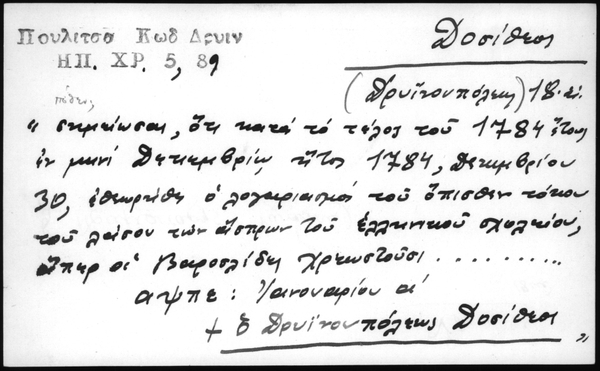 Πουλιτσα Κωδ Δρυιν
ΗΠ. ΧΡ. 5, 89
Δοσίθεος
(Δρυϊνουπόλεως) 18. αἰ.
πόθεν;
" σημείωσαι, ὅτι κατά τό τέλος τοῦ 1784 ἔτους
ἐν μηνί Δεκεμβρίῳ ἤτοι 1784, Δεκεμβρίου
30, ἐθεωρήθη ὁ λογαριασμός τοῦ ὄπισθεν τόκου
τοῦ λάσσου τῶν ἄσπρων τοῦ ἑλληνικοῦ σχολείου,
ἅπερ οἱ Βαροσλίδες χρεωστοῦσι ..........
αψπε : Ἰαννουαρίου αἱ
+ ὁ Δρυϊνουπόλεως Δοσίθεος "